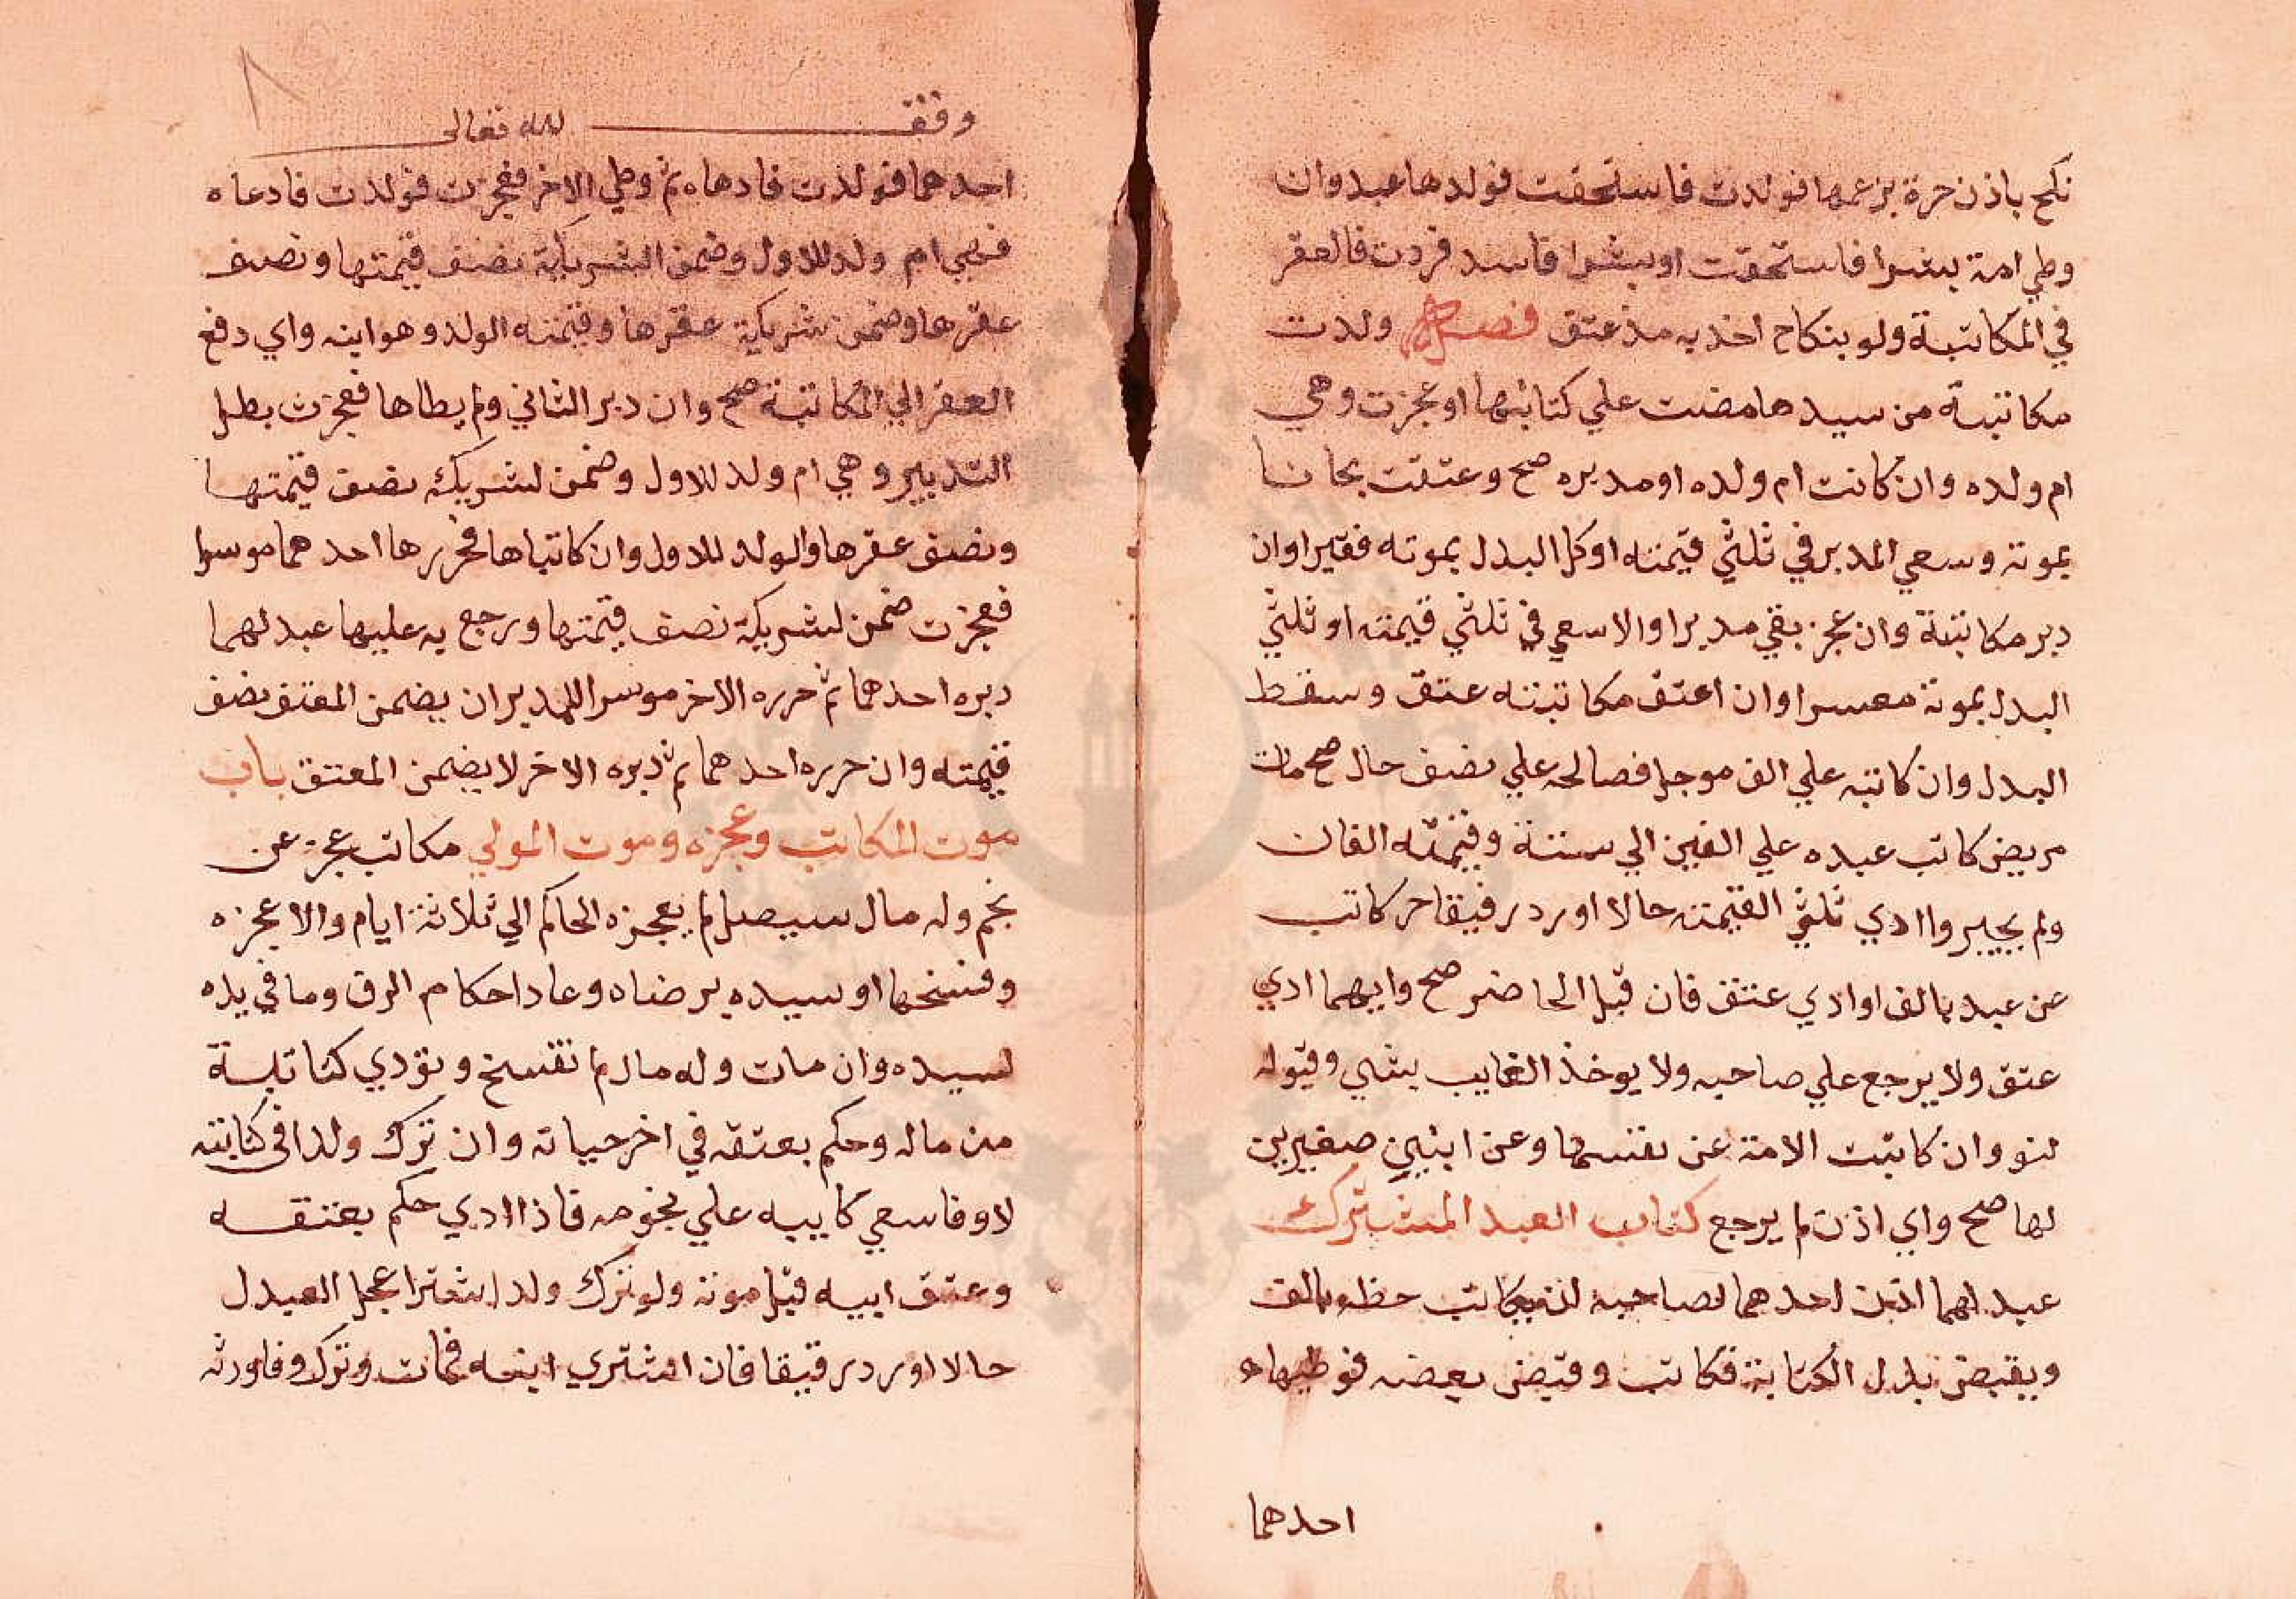 نكح باذن حرة بزعمها فولدت فاستحقت فولدها عبد وان
وطي امة بشرا فاستحقت او بشرا فاسد فردت فالعقر
في المكاتبة ولو بنكاح اخذ به مذ عتق فصل ولدت
مكاتبة من سيدها مضت علي كتابتها او عجزت وهي
ام ولده وان كانت ام ولده او مدبره صح وعتقت مجانا
بموته وسعي المدبر في ثلثي قيمته او كل البدل بموته فقيرا وان
دبر مكاتبة وان عجز بقي مدبرا والا سعي في ثلثي قيمته او ثلثي
البدل بموته معسرا وان اعتق مكاتبته عتق وسقط
البدل وان كاتبه علي الف موجل فصالحه علي نصف حال صح مات
مريض كاتب عبده علي الفين الي سنة وقيمته الفان
ولم يجيبروا ادي ثلثي القيمته حالا او رد رقيقا حر كاتب
عن عبد بالف او ادي عتق فان قبل الحاضر صح وايهما ادي
عتق ولا يرجع علي صاحبه ولا يوخذ الغايب بشي وقبوله
لنو وان كاتبت الامة عن نفسها وعن ابنين صغيرين
لها صح واي اذن لم يرجع كتاب العبد المشترك
عبد لهما اذن احدهما لصاحبه ان يكاتب حظه بالف
ويقبض بدل الكتابة فكاتب وقبض بعضه فوطيها
احدهما
وقف لله تعالى
احدهما فولدت فادعاه ثم وطي الاخر فعجزت فولدت فادعاه
فهي ام ولد للاول وضمن الشريكه نصف قيمتها ونصف
عقرها وضمن شريكه عقرها وقيمته الولد وهو ابنه واي دفع
العقر الي المكاتبة صح وان دبر الثاني ولم يطاها فعجزت بطل
التدبير وهي ام ولد للاول وضمن لشريكه نصف قيمتها
ونصف عقرها والولد للاول وان كاتباها فحررها احدهما موسرا
فعجزت ضمن لشريكه نصف قيمتها ورجع به عليها عبد لهما
دبره احدهما ثم حرره الاخر موسرا للمدبر ان يضمن المعتق نصف
قيمته وان حرره احدهما ثم دبره الاخر لا يضمن المعتق باب
موت المكاتب وعجزه وموت المولي مكاتب عجز عن
نجم وله مال سيصل لم يعجزه الحاكم الي ثلاثة ايام والا عجزه
وفسخها او سيده برضاه وعاد احكام الرق وما في يده
لسيده وان مات وله مال لم تفسخ وتودي كتابته
من ماله وحكم بعتقه في اخر حياته وان ترك ولدا في كتابته
لا وفا سعي كابيه علي نجومه فاذا ادي حكم بعتقه
وعتق ابيه قبل موته ولو ترك ولد اشترا عجل البدل
حالا او رد رقيقا فان اشتري ابنه فمات وترك وفا ورثه